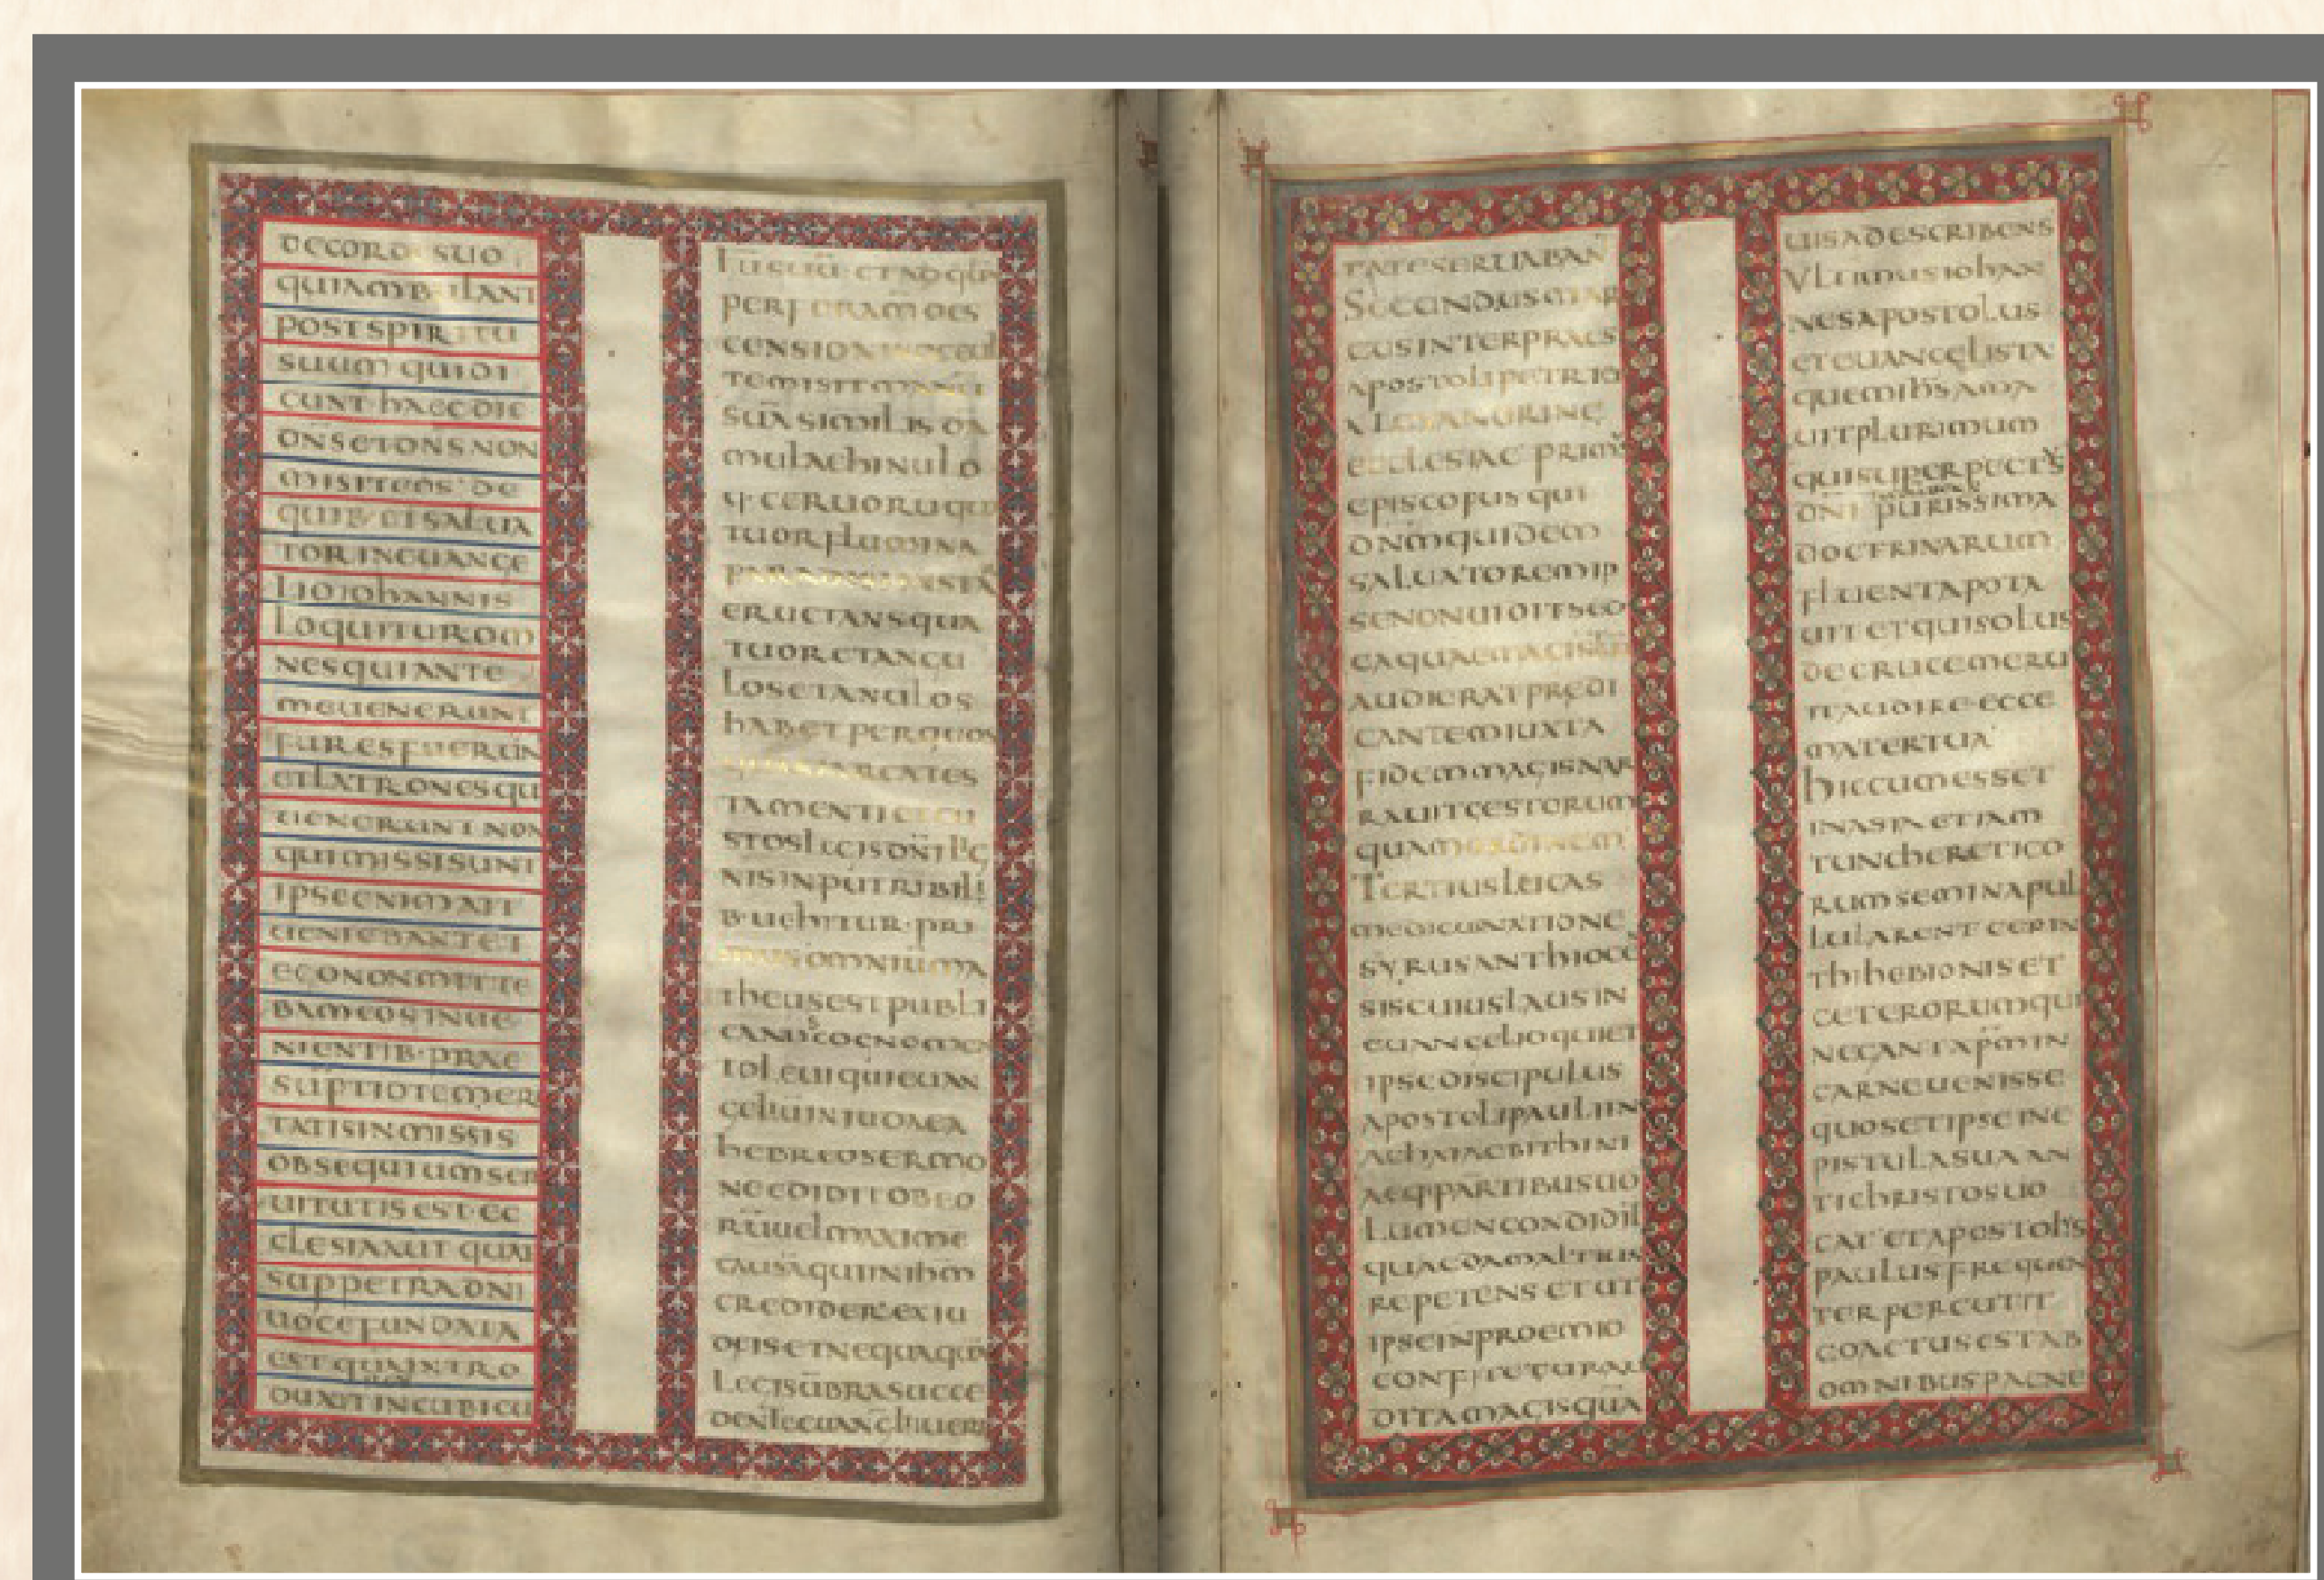 DE CORDE SUO
QUI AMBULANT
POST SPIRITU
SUUM QUI DI
CUNT HAEC DIC
DNS ET DNS NON
MISIT EOS DE
QUIB ET SALUA
TOR IN EUANGE
LIO IOHANNIS
LOQUITUR OM
NES QUI ANTE
ME UENERUNT
FURES FUERUN
ET LATRONES QUI
UENERUNT NON
QUI MISSI SUNT
IPSE ENIM AIT
UENIEBANT ET
EGO NON MITTE
BAM EOS IN UE
NIENTIB PRAE
SUPTIO TEMER
TATIS IN MISSIS
OBSEQUIUM SER
UITUTIS EST EC
CLESIA AUT QUAE
SUP PETRA DNI
UOCE FUNDATA
EST QUA INTRO
DUXIT IN CUBICU
PER FORAMEN
TE MISIT
SUA SIMILIS DA
MULAE HINULO
Q CERUORU QUA
TUOR FLUMINA
PARADISI INSTA
ERUCTANS QUA
TUOR ET ANGU
LOS ET ANULOS
HABET PER QUOS
QUASI ARCA TES
TAMENTI ET CU
STOS LEGIS DNI LIG
NIS INMUTABILI
B UEHITUR PRI
MUS OMNIUM MA
THEUS EST PUBLI
CANUS COGNOMEN
TO LEUI QUI EUAN
GELIU IN IUDAEA
HEBREO SERMO
NE EDIDIT OB EO
RU UEL MAXIME
CAUSA QUI IN IHM
CREDIDER EX IU
DEIS ET NEQUAQUA
LEGIS UBRA SUCCE
DENTE EUANGLII UERI
TATE SERUABAN
SECUNDUS MAR
CUS INTERPRAES
APOSTOLI PETRI ET
ALEXANDRINE
ECCLESIAE PRIMS
EPISCOPUS QUI
DNM QUIDEM
SALUATOREM IP
SE NON UIDIT SED
EA QUAE MAGISTRU
AUDIERAT PREDI
CANTEM IUXTA
FIDEM MAGIS NAR
RAUIT GESTORUM
QUAM ORDINEM
TERTIUS LUCAS
MEDICUS NATIONE
SYRUS ANTHIOCE
SIS CUIUS LAUS IN
EUANGELIO QUI ET
IPSE DISCIPULUS
APOSTOLI PAULI IN
ACHAIAE BITHINI
AEQ PARTIBUS UO
LUMEN CONDIDIT
QUAEDAM ALTIUS
REPETENS ET UT
IPSE IN PROEMIO
CONFITETUR AU
DITA MAGIS QUA
UISA DESCRIBENS
ULTIMUS IOHAN
NES APOSTOLUS
ET EUANGELISTA
QUEM IHS AMA
UIT PLURIMUM
QUI SUPER PECTS
DNI PURISSIMA
DOCTRINARUM
FLUENTA POTA
UIT ET QUI SOLUS
DE CRUCE MERU
IT AUDIRE ECCE
MATER TUA
HIC CUM ESSET
IN ASIA ET IAM
TUNC HERETICO
RUM SEMINA PUL
LULARENT CERIN
THI HEBIONIS ET
CETERORUM QUI
NEGANT XPM IN
CARNE UENISSE
QUOS ET IPSE IN E
PISTULA SUA AN
TICHRISTOS UO
CAT ET APOSTOLS
PAULUS FREQUEN
TER PERCUTIT
COACTUS EST AB
OMNIBUS PAENE